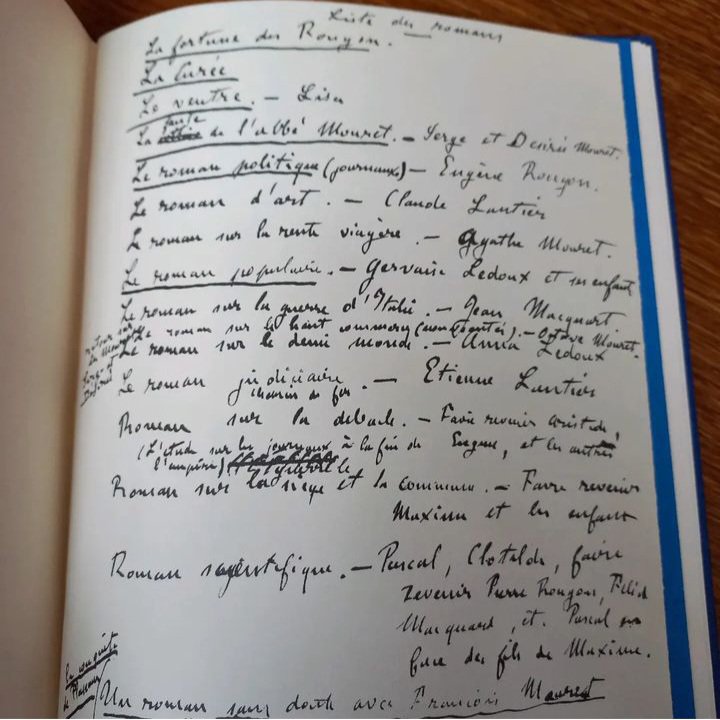 Liste des romans
La fortune des Rougon.
La Curée
Le ventre. — Lisa
La faute de l'abbé Mouret. — Serge et Désirée Mouret.
Le roman politique (journaux) — Eugène Rougon.
Le roman d'art. — Claude Lantier
Le roman sur la rente viagère. — Agathe Mouret.
Le roman populaire. — Gervaise Ledoux et ses enfants
Le roman sur la guerre d'Italie. — Jean Macquart
Le roman sur le haut commerce (nouveautés). — Octave Mouret.
Le roman sur le demi monde. — Anna Ledoux
Le roman judiciaire. — Etienne Lantier
chemin de fer
Roman sur la débacle. — Faire revenir Aristide,
Eugène, et les autres
(L'étude sur les journaux à la fin de
l'empire)
Roman sur le siège et la commune. — Faire revenir
Maxime et les enfants
Roman scientifique. — Pascal, Clotilde, faire
revenir Pierre Rougon, Félicité
Macquard, et Pascal en
face des fils de Maxime.
la conquête
de Plassans
Un roman sans doute avec François Mouret